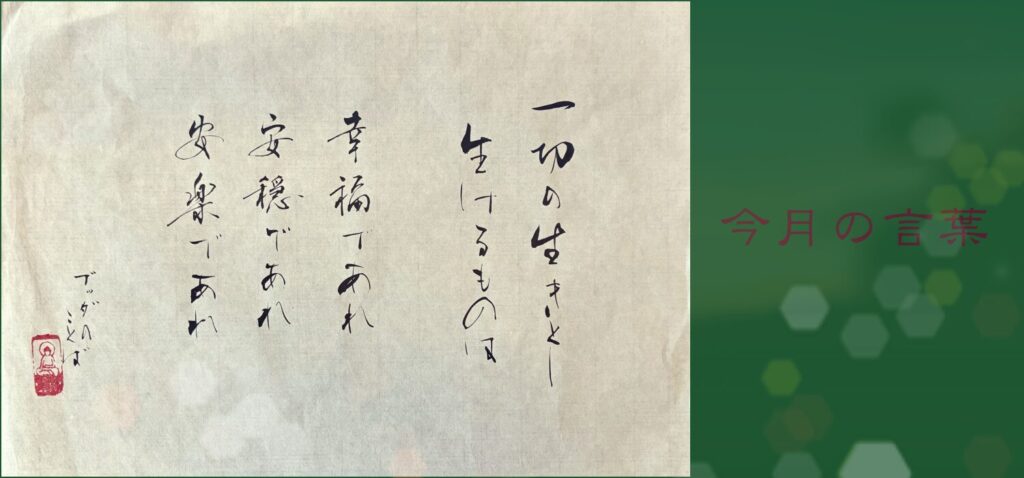 一切の生きとし
生けるものは
幸福であれ
安穏であれ
安楽であれ
ブッダの
ことば
今月の言葉